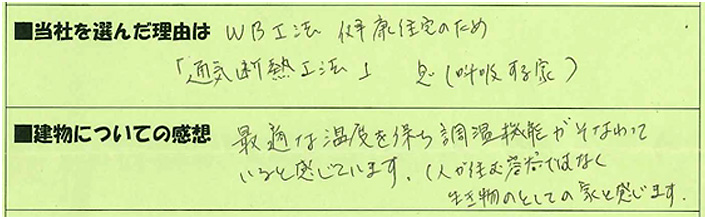 ■当社を選んだ理由は WB工法 健康住宅のため
「通気断熱工法」 息(呼吸する家)
■建物についての感想 最適な温度を保ち調温機能がそなわって
いると感じています。(人が住む ではなく
生き物のとしての家と感じます.